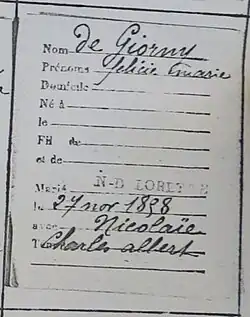 Nom de Giorny
Prénoms felicie Emarie
Domicile
Né à
le
FH de
et de
Marié N-D LORETTE
le 27 nov 1898
avec Nicolaïe
T Charles albert